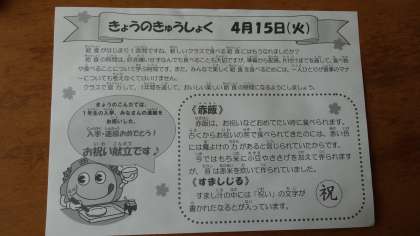 きょうのきゅうしょく　4月15日(火)
給食がはじまり1週間ですね。新しいクラスで食べる給食にはもうなれましたか？
給食の時間は、好き嫌いせずなんでも食べることも大切ですが、準備から配膳、片付けまでを通して、食べ物
や食べることについて学ぶ時間です。また、みんなで楽しく給食を食べるためには、一人ひとりが食事のマナ
ーについても考えなくてはいけません。
クラスで協力して、1年間を通して、おいしい楽しい給食の時間になるようにしましょう。
きょうのこんだては、
1年生の入学、みなさんの進級を
お祝いした、
入学・進級おめでとう！
お祝い献立です♪
《赤飯》
赤飯は、お祝いなどおめでたい時に食べられます。
古くからお祝いの席で食べられてきたのには、赤い色
には魔よけの力があると信じられていたからです。
今ではもち米に小豆やささげを加えて作られます
が、昔は赤米を炊いて作られていました。
《すましじる》
すまし汁の中には「祝い」の文字が
書かれたなるとが入っています。
祝